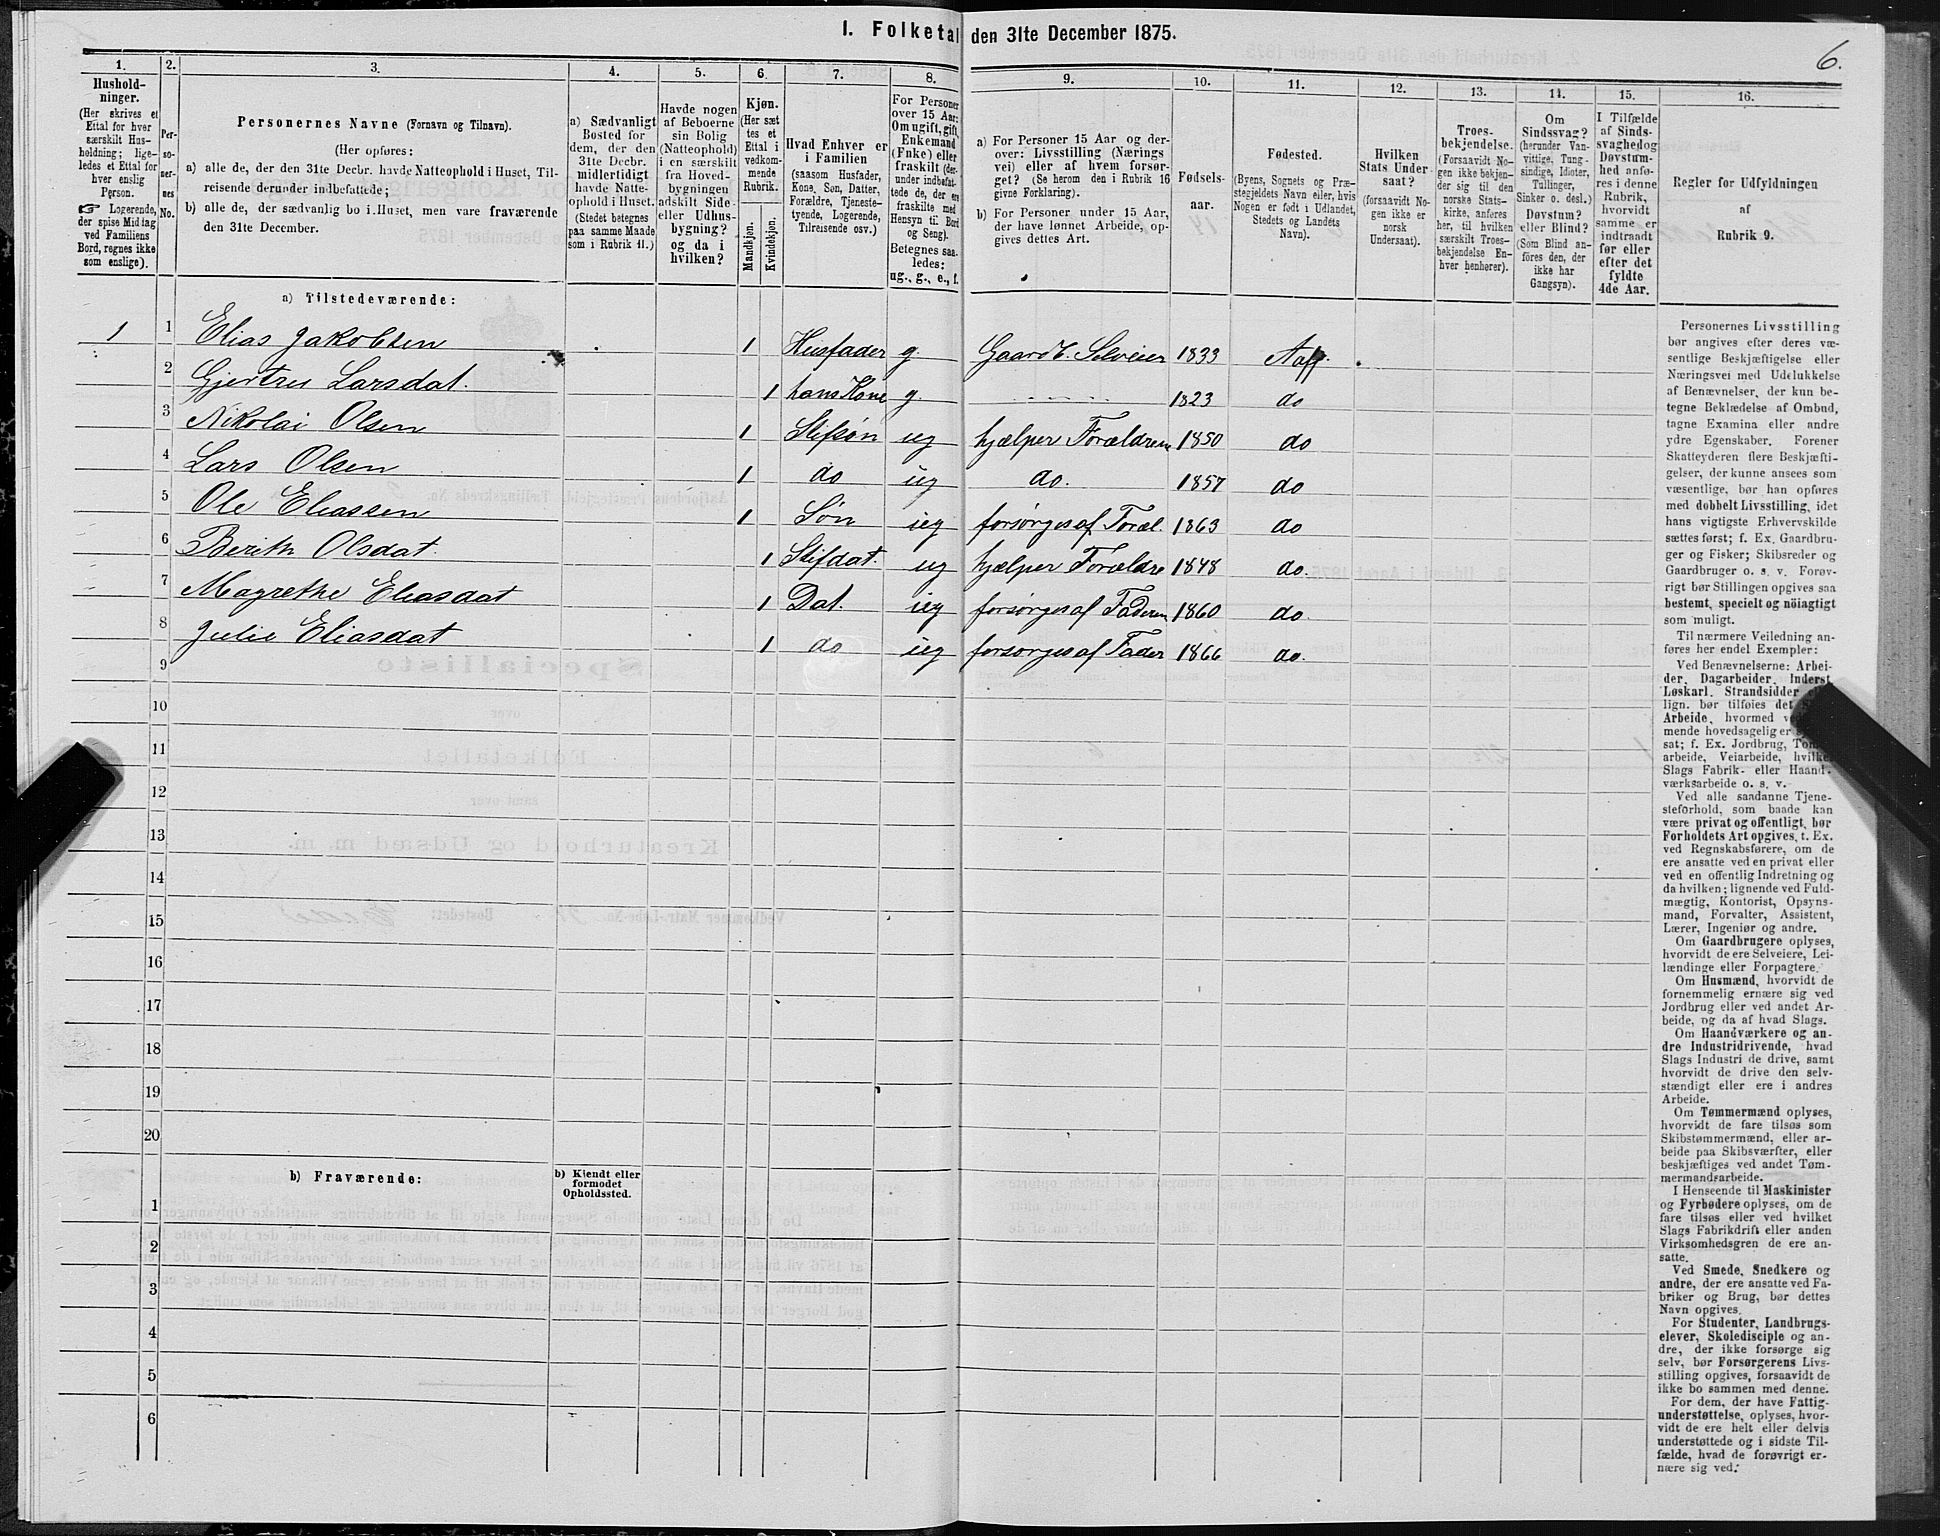 I. Folketal den 31te December 1875.
6.
1.
Husholdninger.
(Her skrives et Ettal for hver særskilt Husholdning; ligeledes et Ettal for hver enslig Person.
☞ Logerende, der spise Middag ved Familiens Bord, regnes ikke som enslige).
2.
Personernes No.
3.
Personernes Navne (Fornavn og Tilnavn).
(Her opføres:
a) alle de, der den 31te Decbr. havde Natteophold i Huset, Tilreisende derunder indbefattede;
b) alle de, der sædvanlig bo i Huset, men vare fraværende den 31te December.
4.
a) Sædvanligt Bosted for dem, der den 31te Decbr. midlertidigt havde Natteophold i Huset.
(Stedet betegnes paa samme Maade som i Rubrik 11.)
5.
Havde nogen af Beboerne sin Bolig (Natteophold) i en særskilt fra Hovedbygningen adskilt Side- eller Udhusbygning? og da i hvilken?
6.
Kjøn.
(Her sættes et Ettal i vedkommende Rubrik.
Mandkjøn.
Kvindekjøn.
7.
Hvad Enhver er i Familien
(saasom Husfader, Kone, Søn, Datter, Forældre, Tjenestetyende, Logerende, Tilreisende osv.)
8.
For Personer over 15 Aar: Om ugift, gift, Enkemand (Enke) eller fraskilt (derunder indbefattede de, der ere fraskilte med Hensyn til Bord og Seng).
Betegnes saaledes: ug., g., e., f.
9.
a) For Personer 15 Aar og derover: Livsstilling (Næringsvei) eller af hvem forsørget? (Se herom den i Rubrik 16 givne Forklaring).
b) For Personer under 15 Aar, der have lønnet Arbeide, opgives dettes Art.
10.
Fødselsaar.
11.
Fødested.
(Byens, Sognets og Præstegjeldets Navn eller, hvis Nogen er født i Udlandet, Stedets og Landets Navn).
12.
Hvilken Stats Undersaat?
(forsaavidt Nogen ikke er norsk Undersaat).
13.
Troesbekjendelse.
(Forsaavidt Nogen ikke bekjender sig til den norske Statskirke, anføres her, til hvilken særskilt Troesbekjendelse Enhver henhører).
14.
Om Sindssvag?
(herunder Vanvittige, Tungsindige, Idioter, Tullinger, Sinker o. desl.)
Døvstum? eller Blind?
(Som Blind anføres den, der ikke har Gangsyn).
15.
I Tilfælde af Sindssvaghed og Døvstumhed anføres i denne Rubrik, hvorvidt samme er indtraadt før eller efter det fyldte 4de Aar.
16.
Regler for Udfyldningen
af
Rubrik 9.
a) Tilstedeværende:
1 1 Elias Jakobsen 1 Husfader g. Gaardb. Selveier 1833 Aafj.
2 Gjertru Larsdat. 1 hans Kone g. 1823 do
3 Nikolai Olsen 1 Stifsøn ug hjælper Forældrene 1850 do
4 Lars Olsen 1 do ug do. 1857 do
5 Ole Eliassen 1 Søn ug forsørges af Foræl. 1863 do
6 Berith Olsdat. 1 Stifdat. ug hjælper Forældre 1848 do.
7 Magrethe Eliasdat 1 Dat. ug forsørges af Faderen 1860 do.
8 Julie Eliasdat 1 do ug forsørges af Fader 1866 do.
9
10
11
12
13
14
15
16
17
18
19
20
b) Fraværende:
b) Kjendt eller formodet Opholdssted.
1
2
3
4
5
6
Personernes Livsstilling
bør angives efter deres væ-
sentlige Beskjæftigelse eller
Næringsvei med Udelukkelse
af Benævnelser, der kun be-
tegne Beklædelse af Ombud,
tagne Examina eller andre
ydre Egenskaber. Forener
Skatteyderen flere Beskjæfti-
gelser, der kunne ansees som
væsentlige, bør han opføres
med dobbelt Livsstilling, idet
hans vigtigste Erhvervskilde
sættes først; f. Ex. Gaardbru-
ger og Fisker; Skibsreder og
Gaardbruger o. s. v. Forøv-
rigt bør Stillingen opgives saa
bestemt, specielt og nöiagtigt
som muligt.
Til nærmere Veiledning an-
føres her endel Exempler:
Ved Benævnelserne: Arbei-
der, Dagarbeider, Inderst,
Løskarl, Strandsidder
lign. bør tilføies det
Arbeide, hvormed
mende hovedsagelig er
sat; f. Ex. Jordbrug,
arbeide, Veiarbeide, hvilket
Slags Fabrik- eller Haand-
værksarbeide o. s. v.
Ved alle saadanne Tjene-
steforhold, som baade kan
være privat og offentligt, bør
Forholdets Art opgives, t. Ex.
ved Regnskabsførere, om de
ere ansatte ved en privat eller
ved en offentlig Indretning og
da hvilken; lignende ved Fuld-
mægtig, Kontorist, Opsyns-
mand, Forvalter, Assistent,
Lærer, Ingeniør og andre.
Om Gaardbrugere oplyses,
hvorvidt de ere Selveiere, Lei-
lændinge eller Forpagtere.
Om Husmænd, hvorvidt de
fornemmelig ernære sig ved
Jordbrug eller ved andet Ar-
beide, og da af hvad Slags.
Om Haandværkere og an-
dre Industridrivende, hvad
Slags Industri de drive, samt
hvorvidt de drive den selv-
stændigt eller ere i andres
Arbeide.
Om Tømmermænd oplyses,
hvorvidt de fare tilsøs som
Skibstømmermænd, eller ar-
beide paa Skibsværfter, eller
beskjæftiges ved andet Tøm-
mermandsarbeide.
I Henseende til Maskinister
og Fyrbødere oplyses, om de
fare tilsøs eller ved hvilket
Slags Fabrikdrift eller anden
Virksomhedsgren de ere an-
satte.
Ved Smede, Snedkere og
andre, der ere ansatte ved Fa-
briker og Brug, bør dettes
Navn opgives.
For Studenter, Landbrugs-
elever, Skoledisciple og an-
dre, der ikke forsørge sig
selv, bør Forsørgerens Livs-
stilling opgives, forsaavidt de
ikke bo sammen med denne.
For dem, der have Fattig-
understøttelse, oplyses, hvor-
vidt de ere helt eller delvis
understøttede og i sidste Til-
fælde, hvad de forøvrigt er-
nære sig ved.